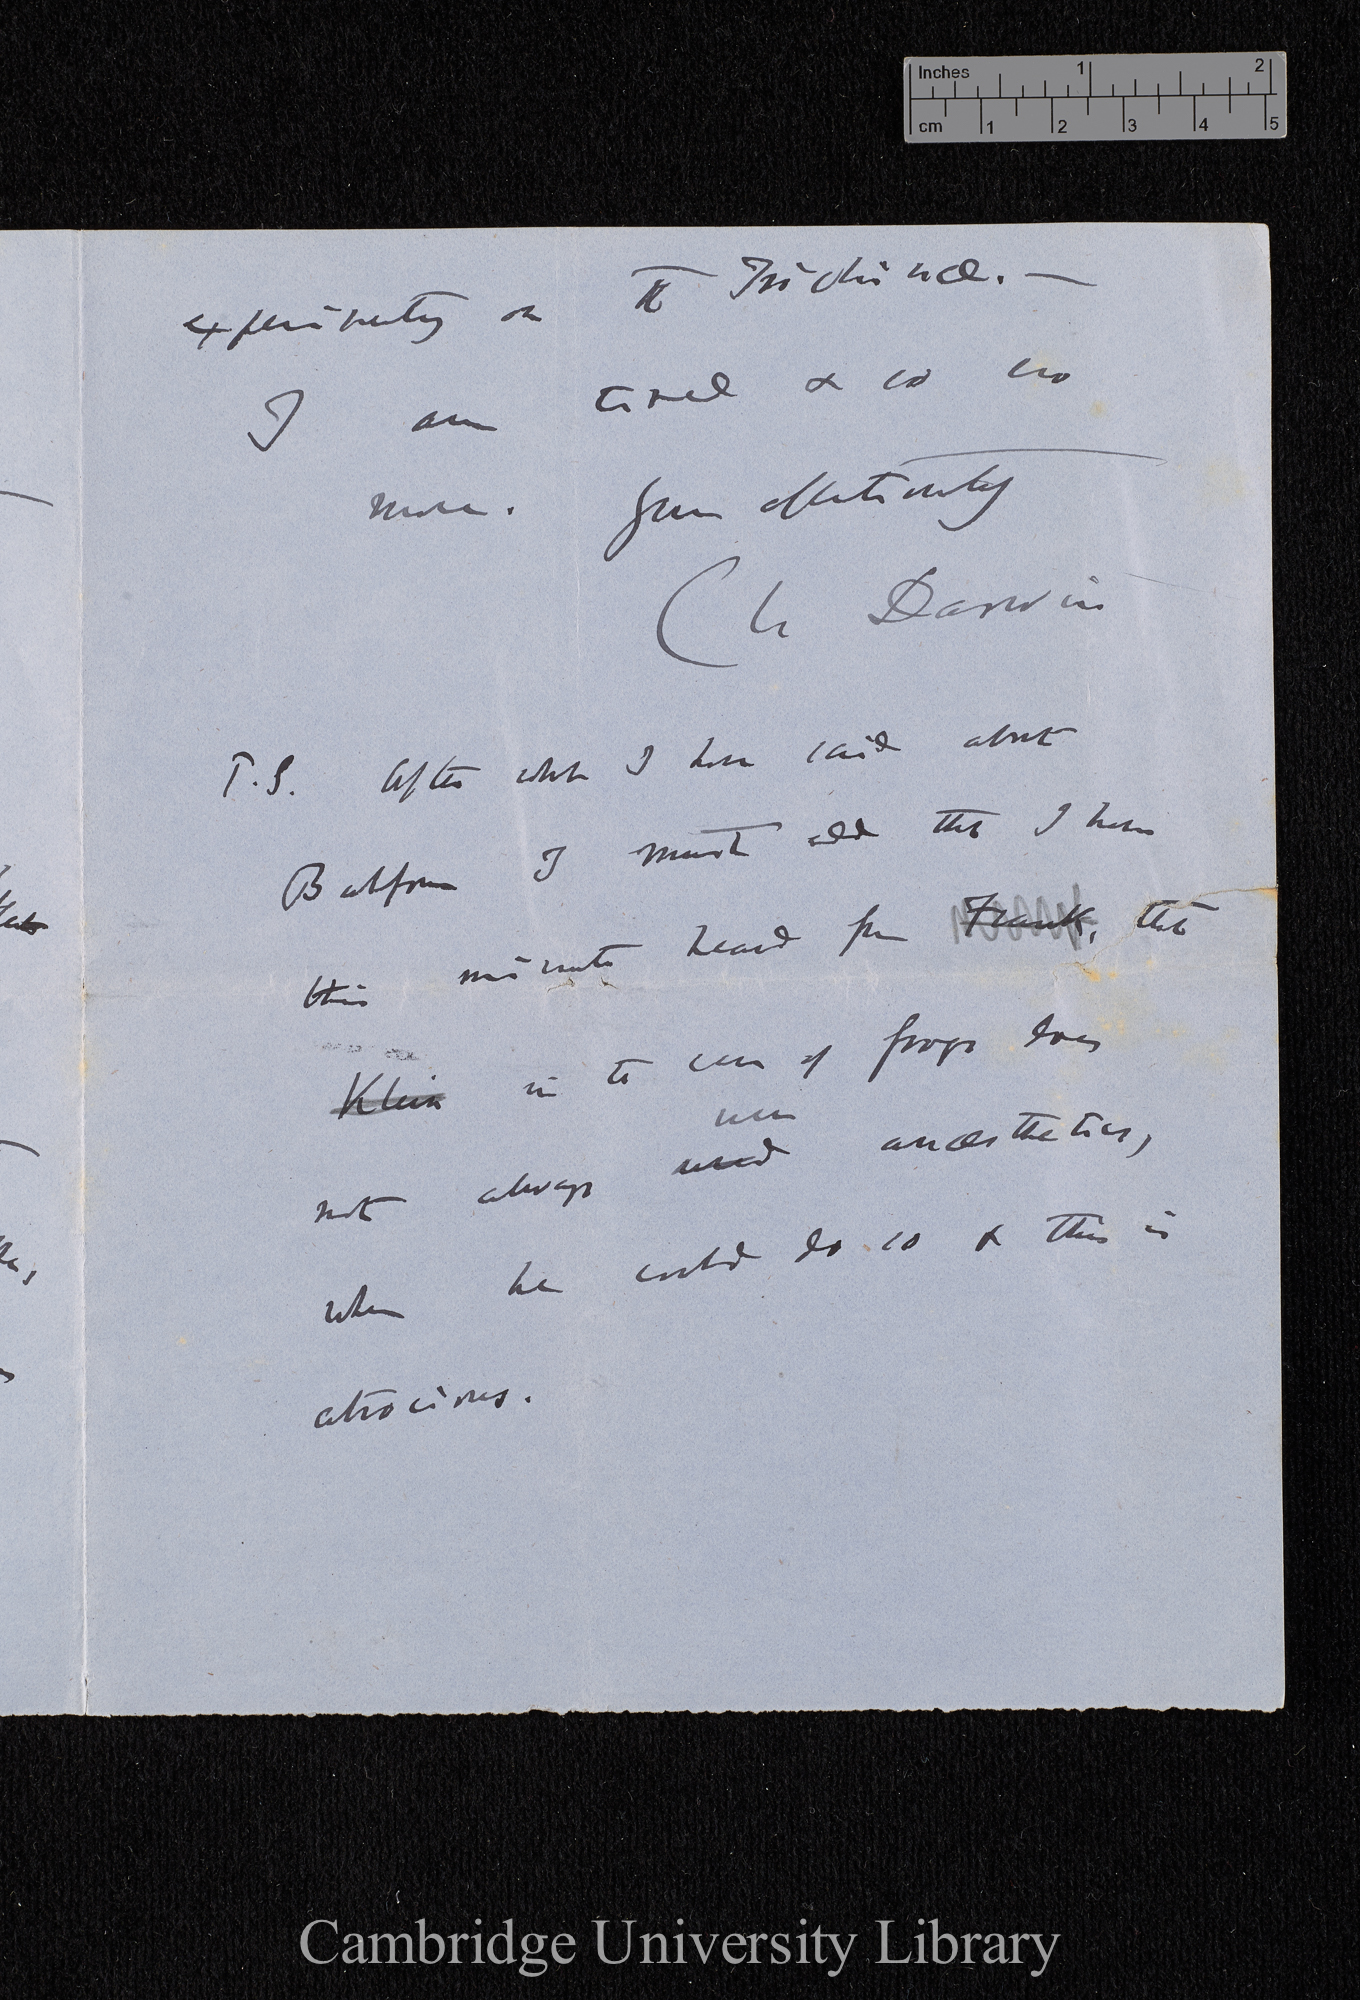 Inches 1 2
cm 1 2 3 4 5
experimenting on the Frictional.—
I am tired & so no
more. Yours affectionately
Ch Darwin
P.S. After what I have said about
Balfour I must add that I have
this minute heard from Frank, that
Klein in the case of frogs does
not always used anæsthetics,
when he could do so & this is
atrocious.
Cambridge University Library